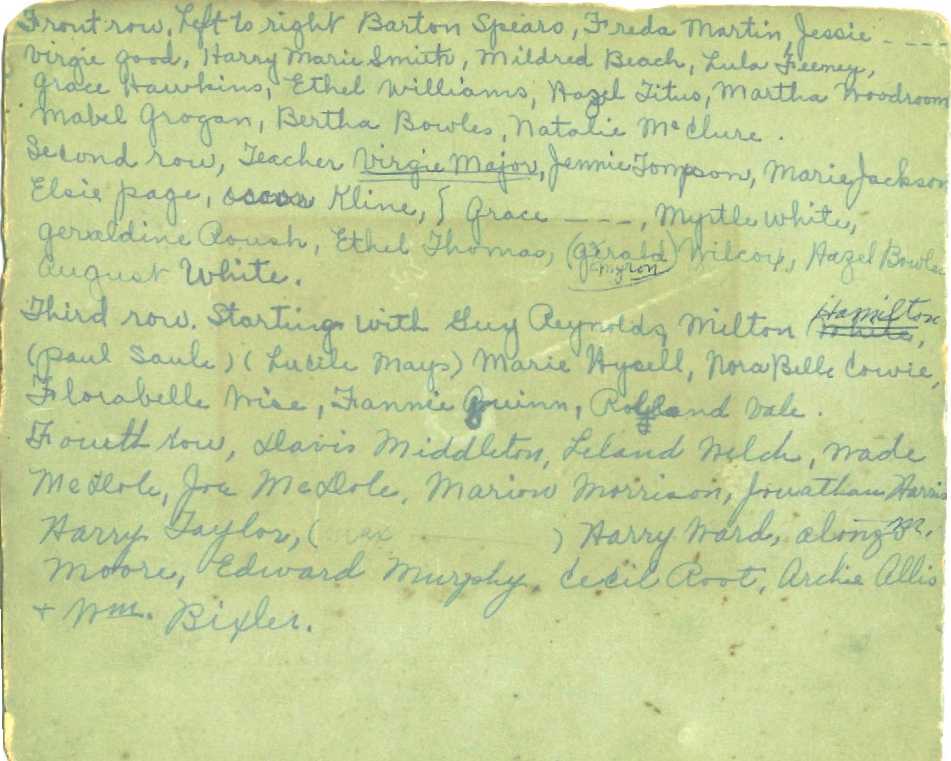 Front row, Left to right Barton Spears, Freda Martin, Jessie - - -
Virgie Good, Harry Marie Smith, Mildred Beach, Lula Feeney,
Grace Hawkins, Ethel Williams, Hazel Titus, Martha Woodroom
Mabel Grogan, Bertha Bowles, Natalie McClure.
Second row, Teacher Virgie Major, Jennie Tompson, Marie Jackson
Elsie page, Kline, { Grace - - - -, Myrtle White,
Geraldine Roush, Ethel Thomas, (Gerald) Wilcox, Hazel Bowles
myron
August White.
Third row. Starting with Guy Reynolds, Milton Hamilton
White,
(paul Saule) (Lucile Mays) Marie Hysell, Nora Belle Cowie,
Florabelle Wise, Fannie Quinn, Rolland Vale.
Fourth row, Davis Middleton, Leland Welch, Wade
McDole, Joe McDole, Marion Morrison, Jonathan Harris
Harry Taylor, (max ) Harry Ward, alongzo M.
Moore, Edward Murphy, Cecil Root, Archie Allis
+ Wm. Bixler.